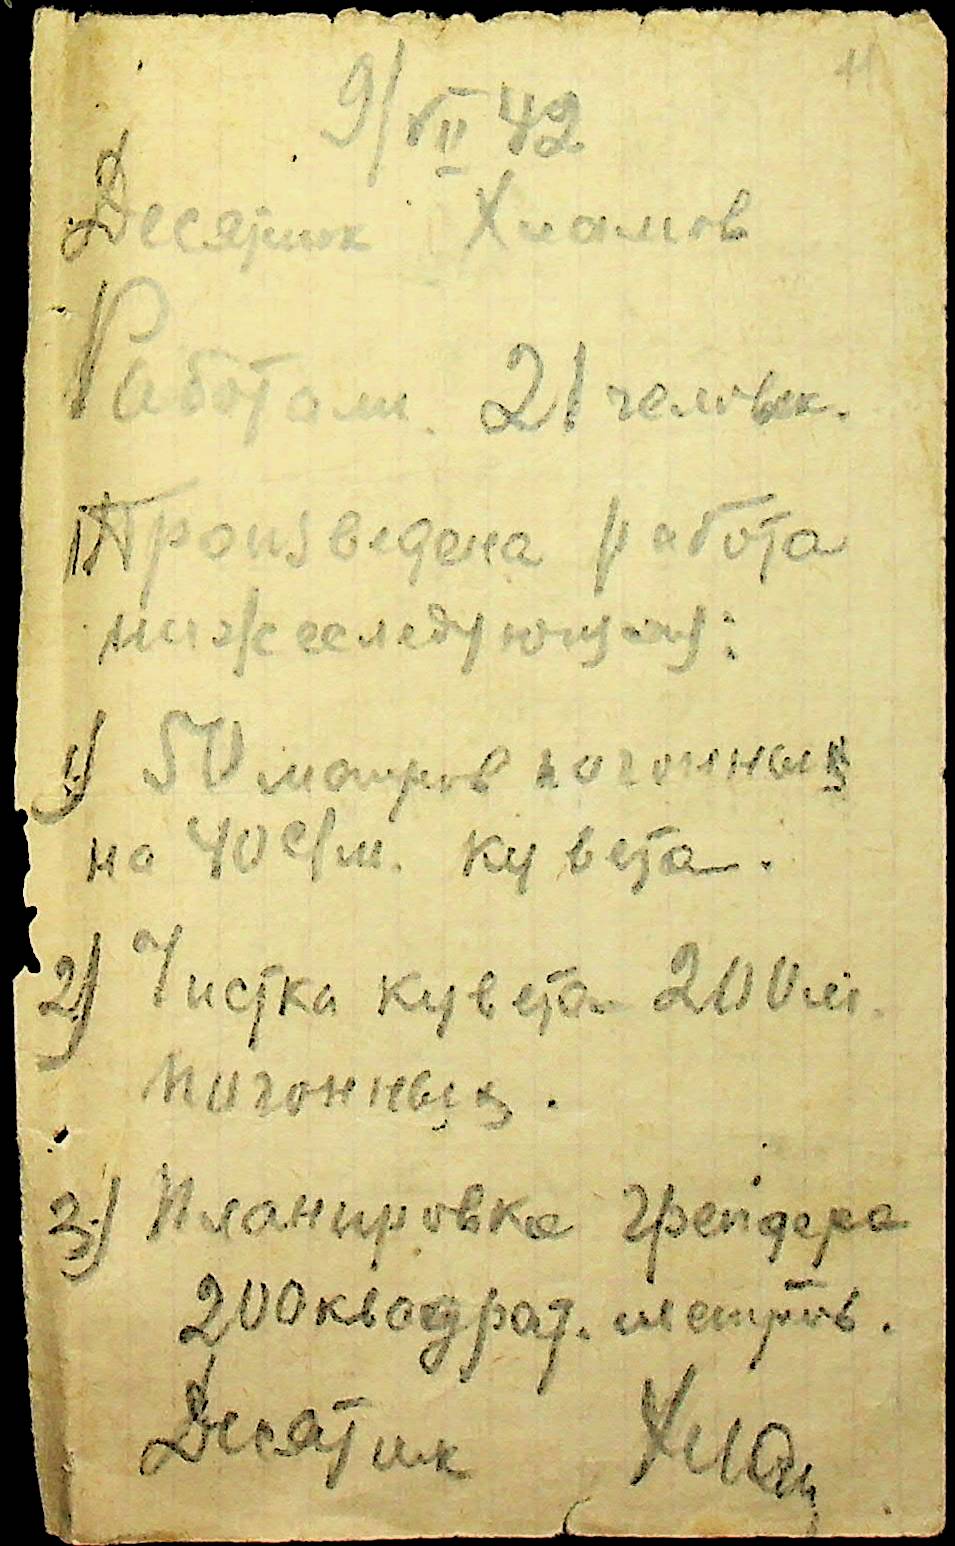 11
9/VII 42
Десятник Хламов
Работали 21 человек.
Произведена работа
нижеследующая:
1) 50 метров погонных
на 40 с/м. кувета.
2) Чистка кувета 200 м.
погонных.
3) Планировка грейдера
200 квадрат. метров.
Десятник Хлам